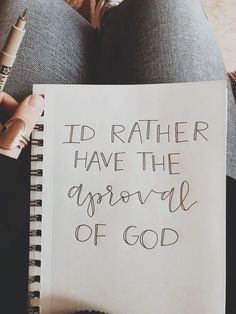 ID RATHER
HAVE THE
aproval
OF GOD